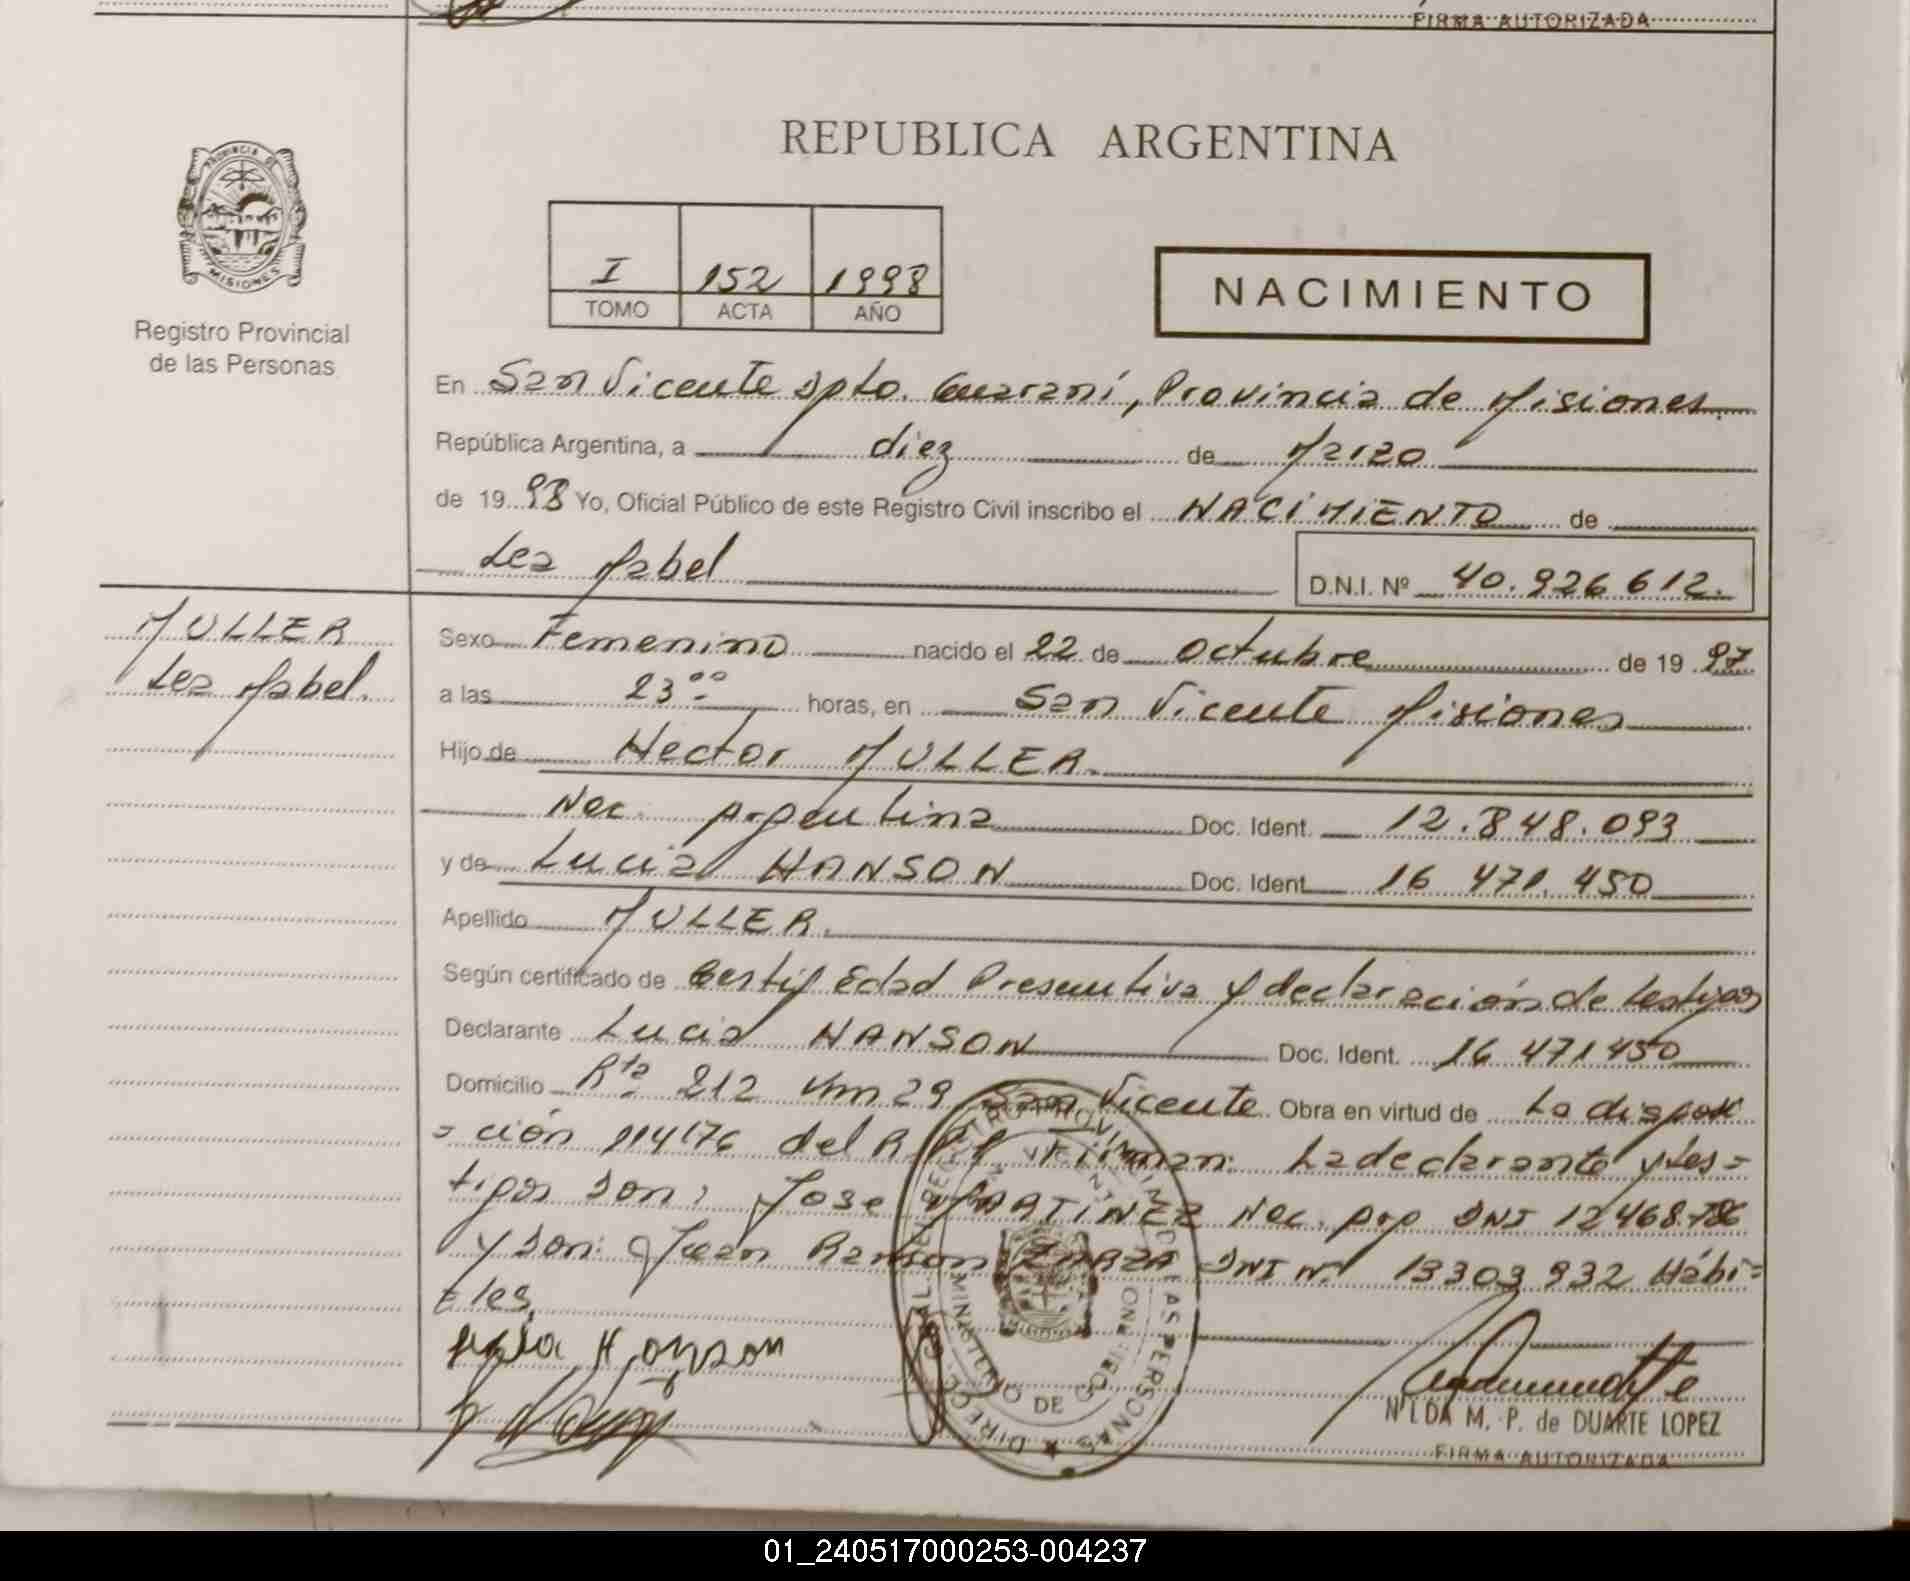 FIRMA AUTORIZADA
REPUBLICA ARGENTINA
PROVINCIA DE
MISIONES
Registro Provincial
de las Personas
I 152 1998
TOMO ACTA AÑO
NACIMIENTO
En San Vicente Dpto. Guaraní, Provincia de Misiones
República Argentina, a diez de Marzo
de 19 98 Yo, Oficial Público de este Registro Civil inscribo el NACIMIENTO de
Lea Mabel
D.N.I. Nº 40.926 612.
MULLER
Lea Mabel.
Sexo Femenino nacido el 22 de Octubre de 19 97
a las 23 00 horas, en San Vicente Misiones
Hijo de Hector MULLER
Nac. Argentina Doc. Ident. 12.848.093
y de Lucia HANSON Doc. Ident. 16 471.450
Apellido MULLER.
Según certificado de Certif Edad Presuntiva y declaración de testigos
Declarante Lucia HANSON Doc. Ident. 16 471 450
Domicilio Rta 212 Km 29 San Vicente Obra en virtud de La disposi
= ción 114/76 del R.P.P. Firman: La declarante y tes=
tigos son: Jose MARTINEZ Nac. Arg DNI 12 468.786
y don: Juan Ramon ZARZA DNI Nº 13303 932 Hábi=
=les.
Hanson
DIRECCION GRAL. DEL REGISTRO PROVINCIAL DE LAS PERSONAS
MINISTERIO DE GOBIERNO
NILDA M. P. de DUARTE LOPEZ
FIRMA AUTORIZADA
01_240517000253-004237